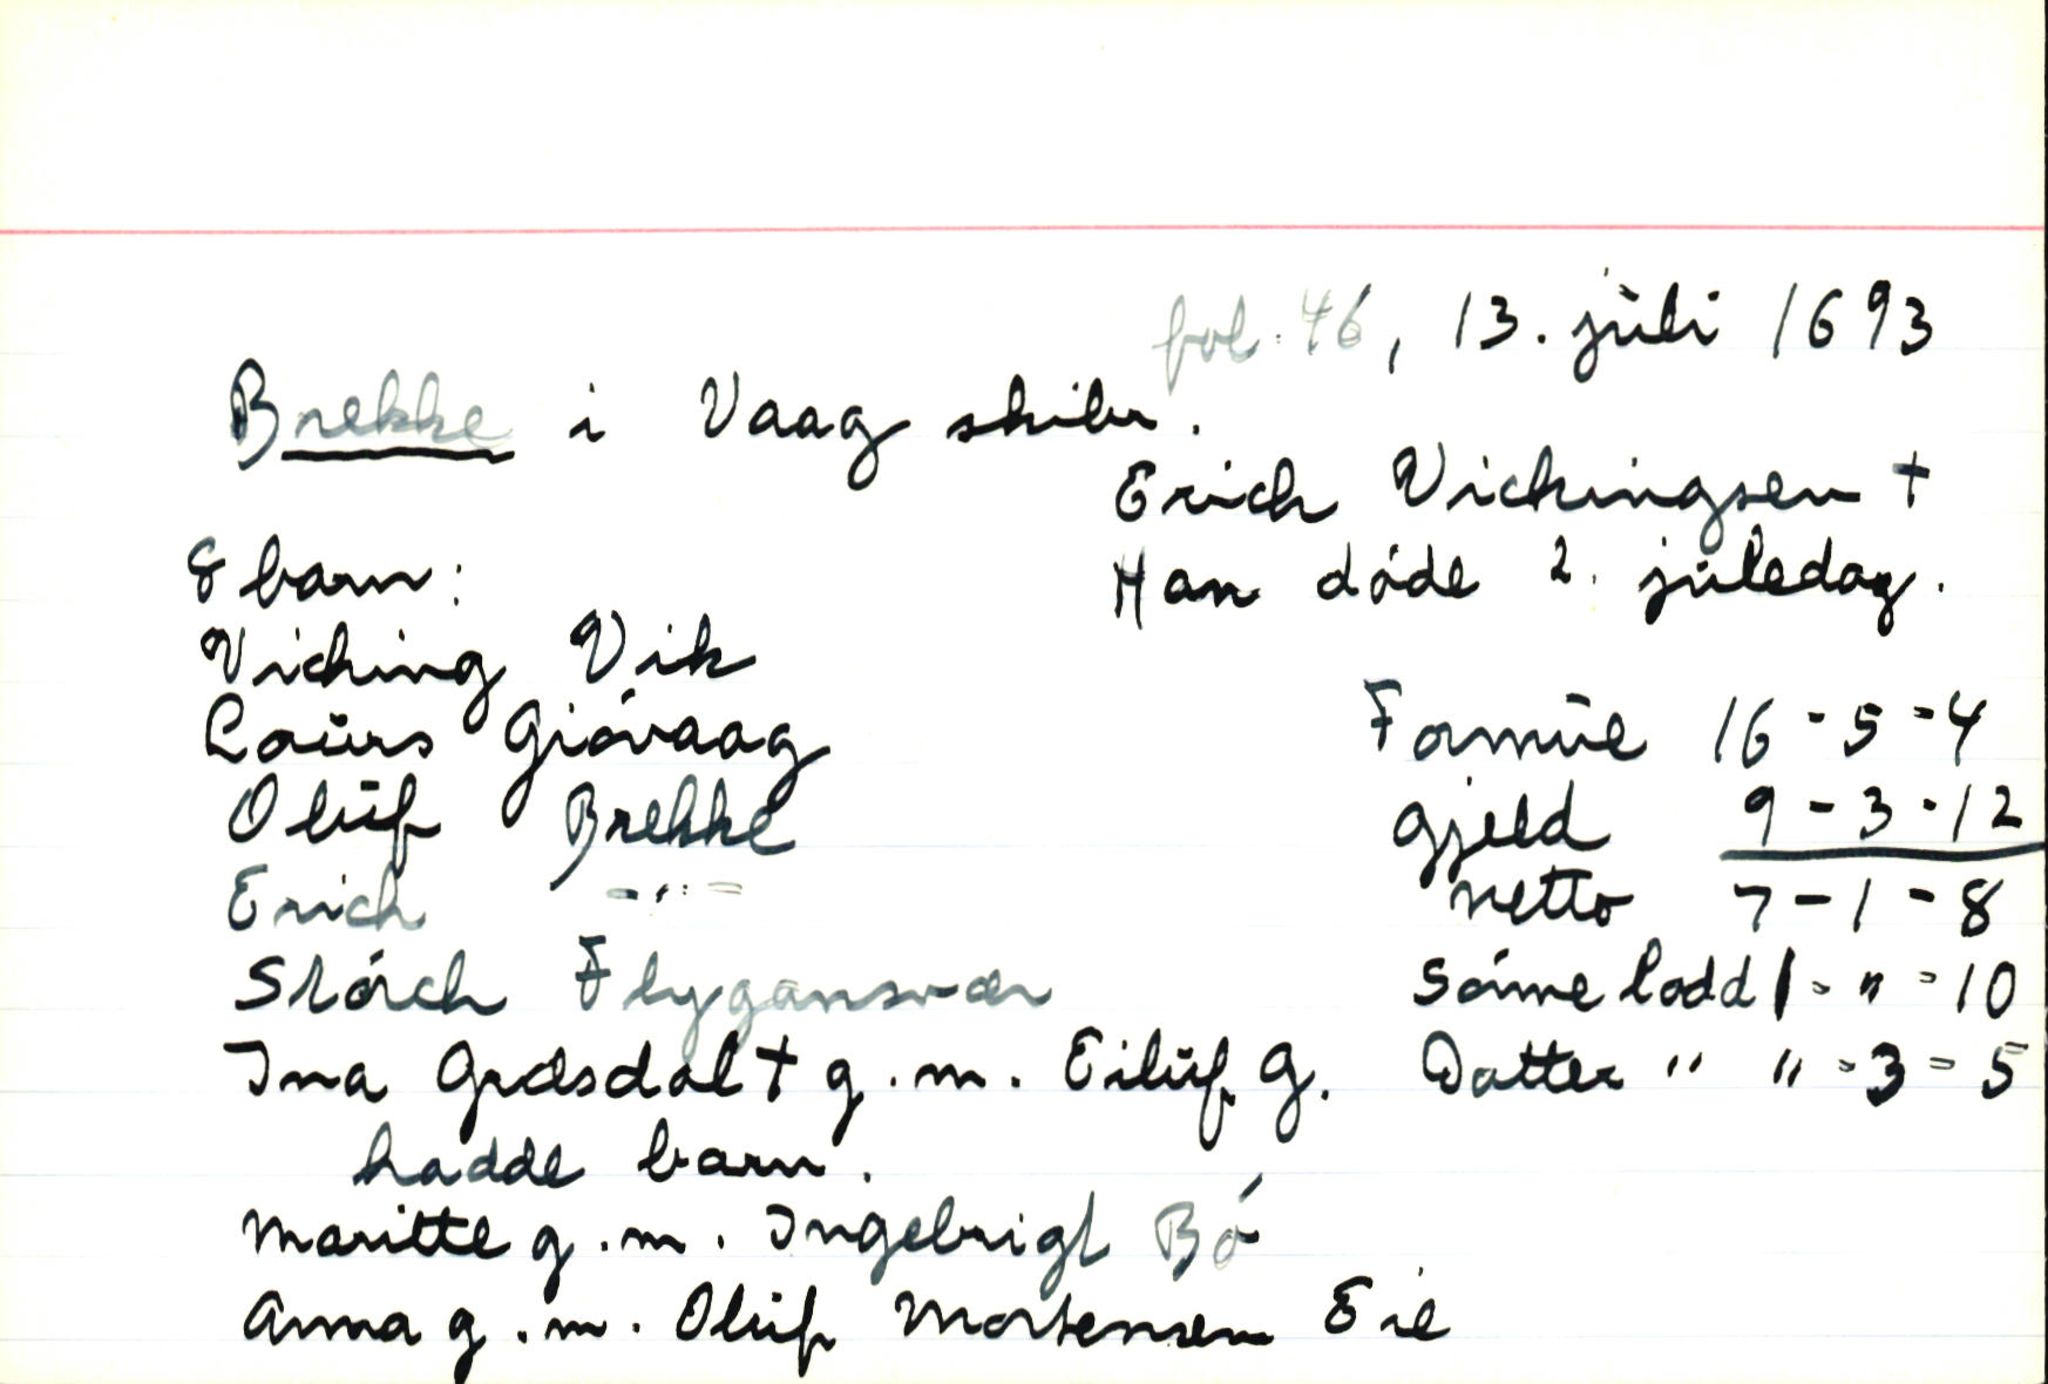 fol. 46, 13. juli 1693
Brekke i Vaag skibr.
Erich Vichingsen +
Han døde 2. juledag.
8 barn:
Viching Vik
Laurs Giøvaag
Oluf Brekke
Erich -"-
Størch Flygansvær
Ina Grdsdal + g.m. Eiluf G.
hadde barn.
Maritte g.m. Ingebrigt Bø
Anna g.m. Oluf Mortensen Eie
Formue 16-5-4
gjeld 9-3-12
netto 7-1-8
Sønne lodd 1-"-10
Datter " "-3-5